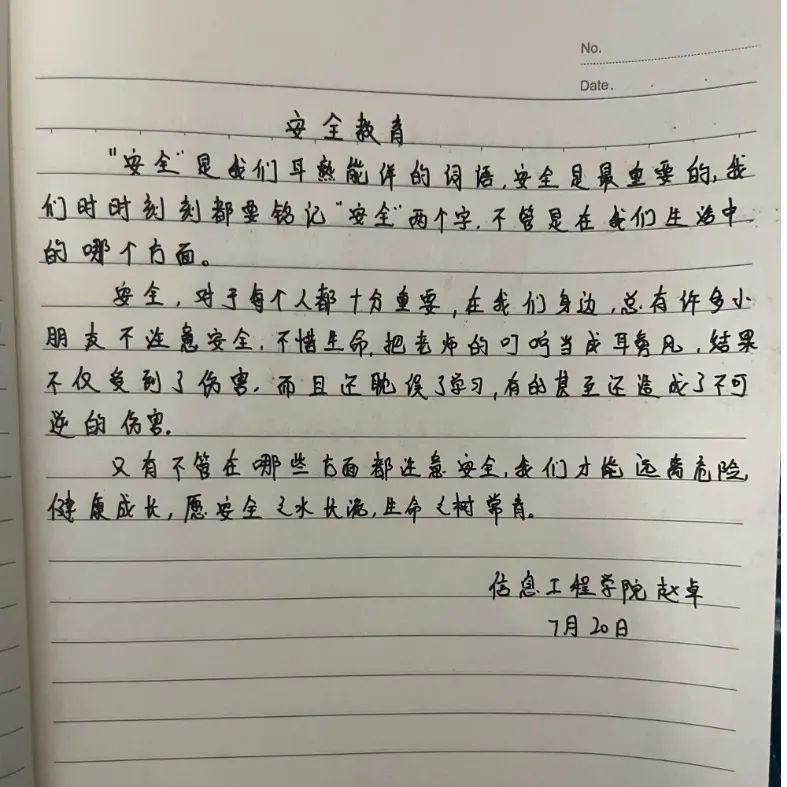 No.
Date.
安全教育
"安全"是我们耳熟能详的词语,安全是最重要的,我
们时时刻刻都要铭记"安全"两个字.不管是在我们生活中
的哪个方面。
安全,对于每个人都十分重要,在我们身边,总有许多小
朋友不注意安全.不惜生命.把老师的叮咛当成耳旁风.结果
不仅受到了伤害.而且还耽误了学习,有的甚至还造成了不可
逆的伤害.
只有不管在哪些方面都注意安全.我们才能远离危险
健康成长,愿安全之水长流,生命之树常青。
信息工程学院赵卓
7月20日